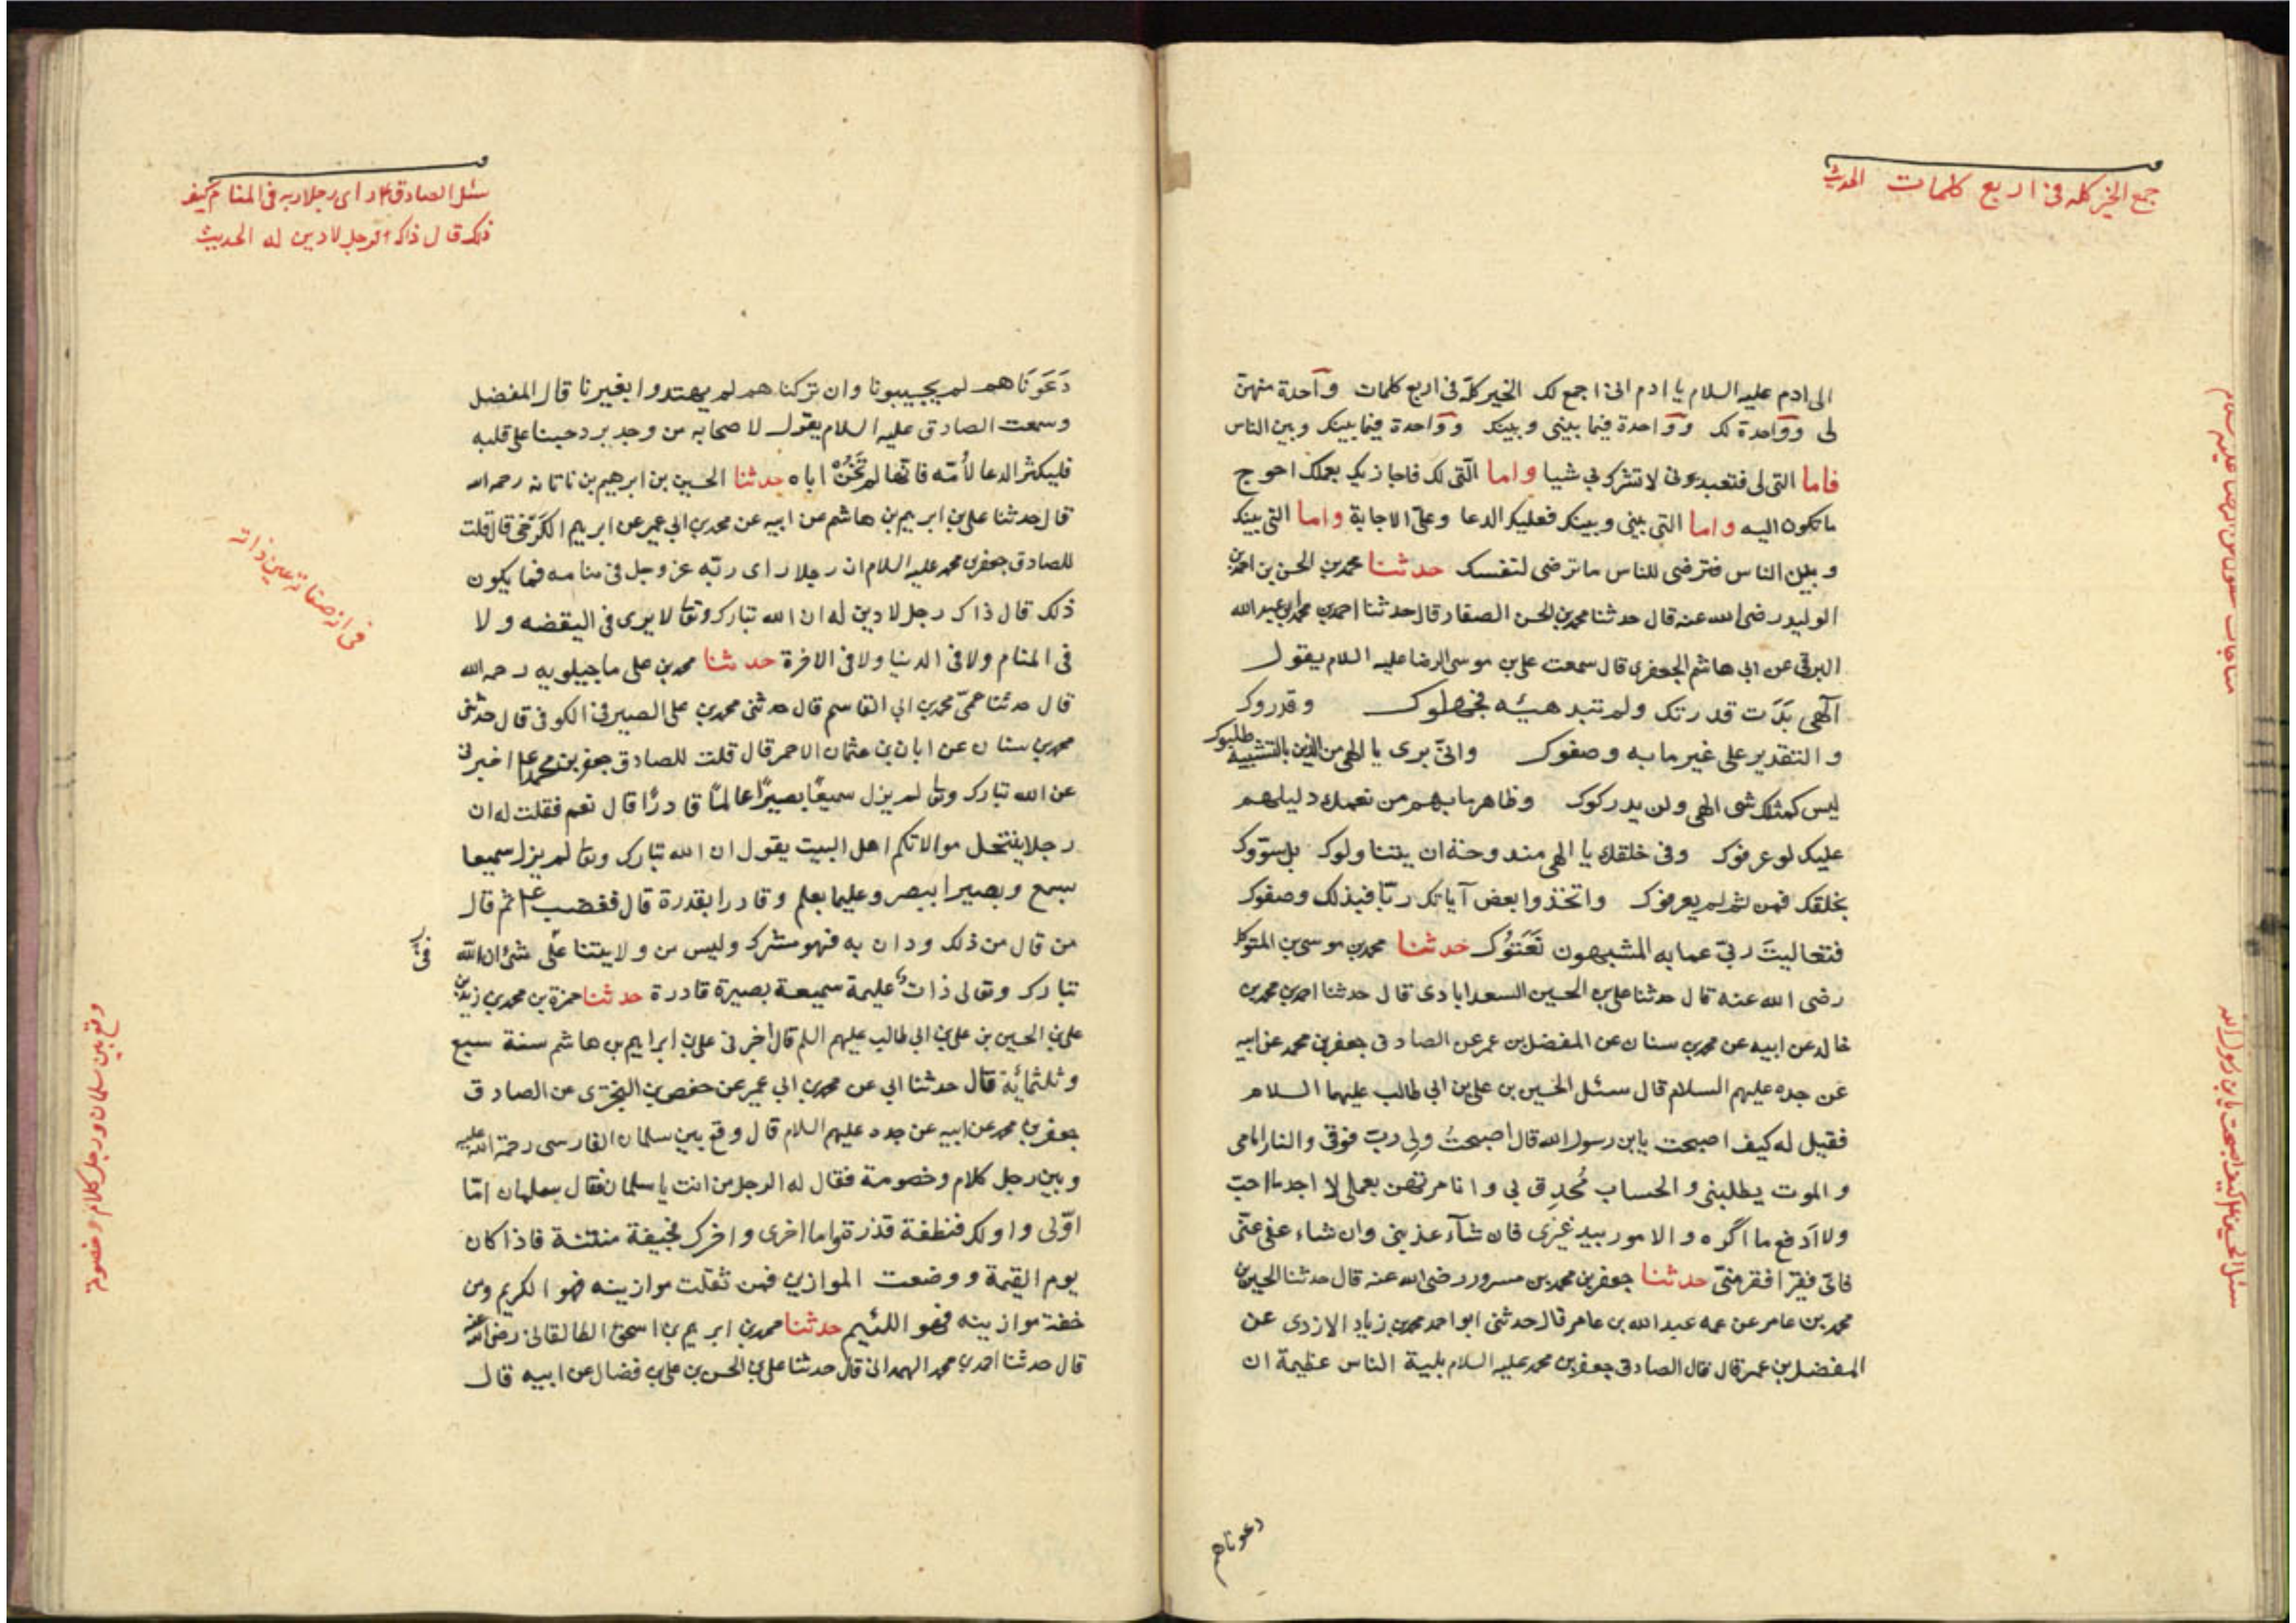 جمع الخير كله فى اربع كلمات الحديث
الى ادم عليه السلام يا ادم انى اجمع لك الخير كلّه فى اربع كلمات وآحدة منهنّ
لى وواحدة لك وواحدة فيما بينى وبينك وواحدة فيما بينك وبين الناس
فاما التى لى فتعبدونى لا تشرك بي شيا واما الّتى لك فاجازيك بعملك احوج
ما تكون اليه واما التى بينى وبينك فعليك الدعا وعلىّ الاجابة واما التى بينك
وبين الناس فترضى للناس ما ترضى لنفسك حدثنا محمد بن الحسن بن احمد بن
الوليد رضى الله عنه قال حدثنا محمد بن الحسن الصفار قال حدثنا احمد بن محمد بن عبد الله
البرقى عن ابي هاشم الجعفرى قال سمعت على بن موسى الرضا عليه السلام يقول
آلهى بَدَت قدرتك ولم تبد هيئه فجهلوك وقدروك
والتقدير على غير ما به وصفوك وانىّ برى يا الهى من الذين بالتشبيه طلبوك
ليس كمثلك شى الهى ولن يدركوك وظاهر ما بهم من نعمك دليلهم
عليك لو عرفوك وفى خلقك يا الهى مندوحة ان يتناولوك بل سوّوك
بخلقك فمن ثم لم يعرفوك واتخذوا بعض آياتك ربّا فبذلك وصفوك
فتعاليتَ ربىّ عما به المشبهون نَعَتوُك حدثنا محمد بن موسى بن المتوكل
رضى الله عنه قال حدثنا على بن الحسين السعدابادى قال حدثنا احمد بن محمد بن
خالد عن ابيه عن محمد بن سنان عن المفضل بن عمر عن الصادق جعفر بن محمد عن ابيه
عن جده عليهم السلام قال سئل الحسين بن على بن ابي طالب عليهما السلام
فقيل له كيف اصبحت يابن رسول الله قال اصبحتُ ولِى ربّ فوقى والنار امامى
والموت يطلبنى والحساب مُحدِق بي وانا مرتهن بعملى لا اجد ما احبّ
ولا اَدفع ما اكره والامور بيد غيرى فان شآء عذبنى وان شاء عفى عنّى
فاىّ فيقر افقر منىّ حدثنا جعفر بن محمد بن مسرور رضى الله عنه قال حدثنا الحسين بن
محمد بن عامر عن عمه عبد الله بن عامر قال حدثنى ابو احمد محمد بن زياد الازدى عن
المفضل بن عمر قال قال الصادق جعفر بن محمد عليه السلام بلية الناس عظيمة ان
دعوناهم
سئل الحسين كيف اصبحت يابن رسول الله
سئل الصادق راى رجلا ربه فى المنام كيف
ذلك قال ذاك الرجل لا دين له الحديث
دَعَوَنَاهم لم يجيبونا وان تركناهم لم يهتدوا بغيرنا قال المفضل
وسمعت الصادق عليه السلام يقول لاصحابه من وجد برد حبنا على قلبه
فليكثر الدعا لأمّه فانّها لم تَخُنْ اباه حدثنا الحسين بن ابرهيم بن ناتانه رحمه الله
قال حدثنا على بن ابريم بن هاشم عن ابيه عن محمد بن ابي عمير عن ابريم الكَرَخى قال قلت
للصادق جعفر بن محمد عليه السلام ان رجلا راى ربّه عز وجل فى منامه فما يكون
ذلك قال ذاك رجل لا دين له ان الله تبارك وتعا لا يرى فى اليقضه ولا
فى المنام ولا فى الدنيا ولا فى الاخرة حدثنا محمد بن على ماجيلويه رحمه الله
قال حدثنا عمىّ محمد بن ابي القاسم قال حدثنى محمد بن على الصيرفى الكوفى قال حدثنى
محمد بن سنان عن ابان بن عثمان الاحمر قال قلت للصادق جعفر بن محمد اخبرنى
عن الله تبارك وتعا لم يزل سميعًا بصيرًا عالمًا قادرًا قال نعم فقلت له ان
رجلا ينتحل موالاتكم اهل البيت يقول ان الله تبارك وتعا لم يزل سميعا
بسمع وبصيرا ببصر وعليما بعلم وقادرا بقدرة قال فغضب ثم قال
من قال من ذلك ودان به فهو مشرك وليس من ولايتنا على شئ ان الله
تبارك وتعالى ذات عليمة سميعة بصيرة قادرة حدثنا حمزة بن محمد بن زيد بن
على بن الحسين بن على بن ابي طالب عليهم السلم قال اخبرنى على بن ابراهيم بن هاشم سنة سبع
وثلثمائة قال حدثنا ابي عن محمد بن ابي عمير عن حفص بن البخترى عن الصادق
جعفر بن محمد عن ابيه عن جده عليهم السلام قال وقع بين سلمان الفارسى رحمة الله عليه
وبين رجل كلام وخصومة فقال له الرجل من انت يا سلمان فقال سلمان امّا
اوّلى واولك فنطفة قذرة واما اخرى واخرك فجيفة منتنة فاذا كان
يوم القيمة ووضعت الموازين فمن ثقلت موازينه فهو الكريم ومن
خفت موازينه فهو اللئيم حدثنا محمد بن ابريم بن اسحق الطالقانى رضى الله عنه
قال حدثنا احمد بن محمد الهمدانى قال حدثنا على بن الحسن بن على بن فضال عن ابيه قال
وقع بين سلمان ورجل كلام وخصومة